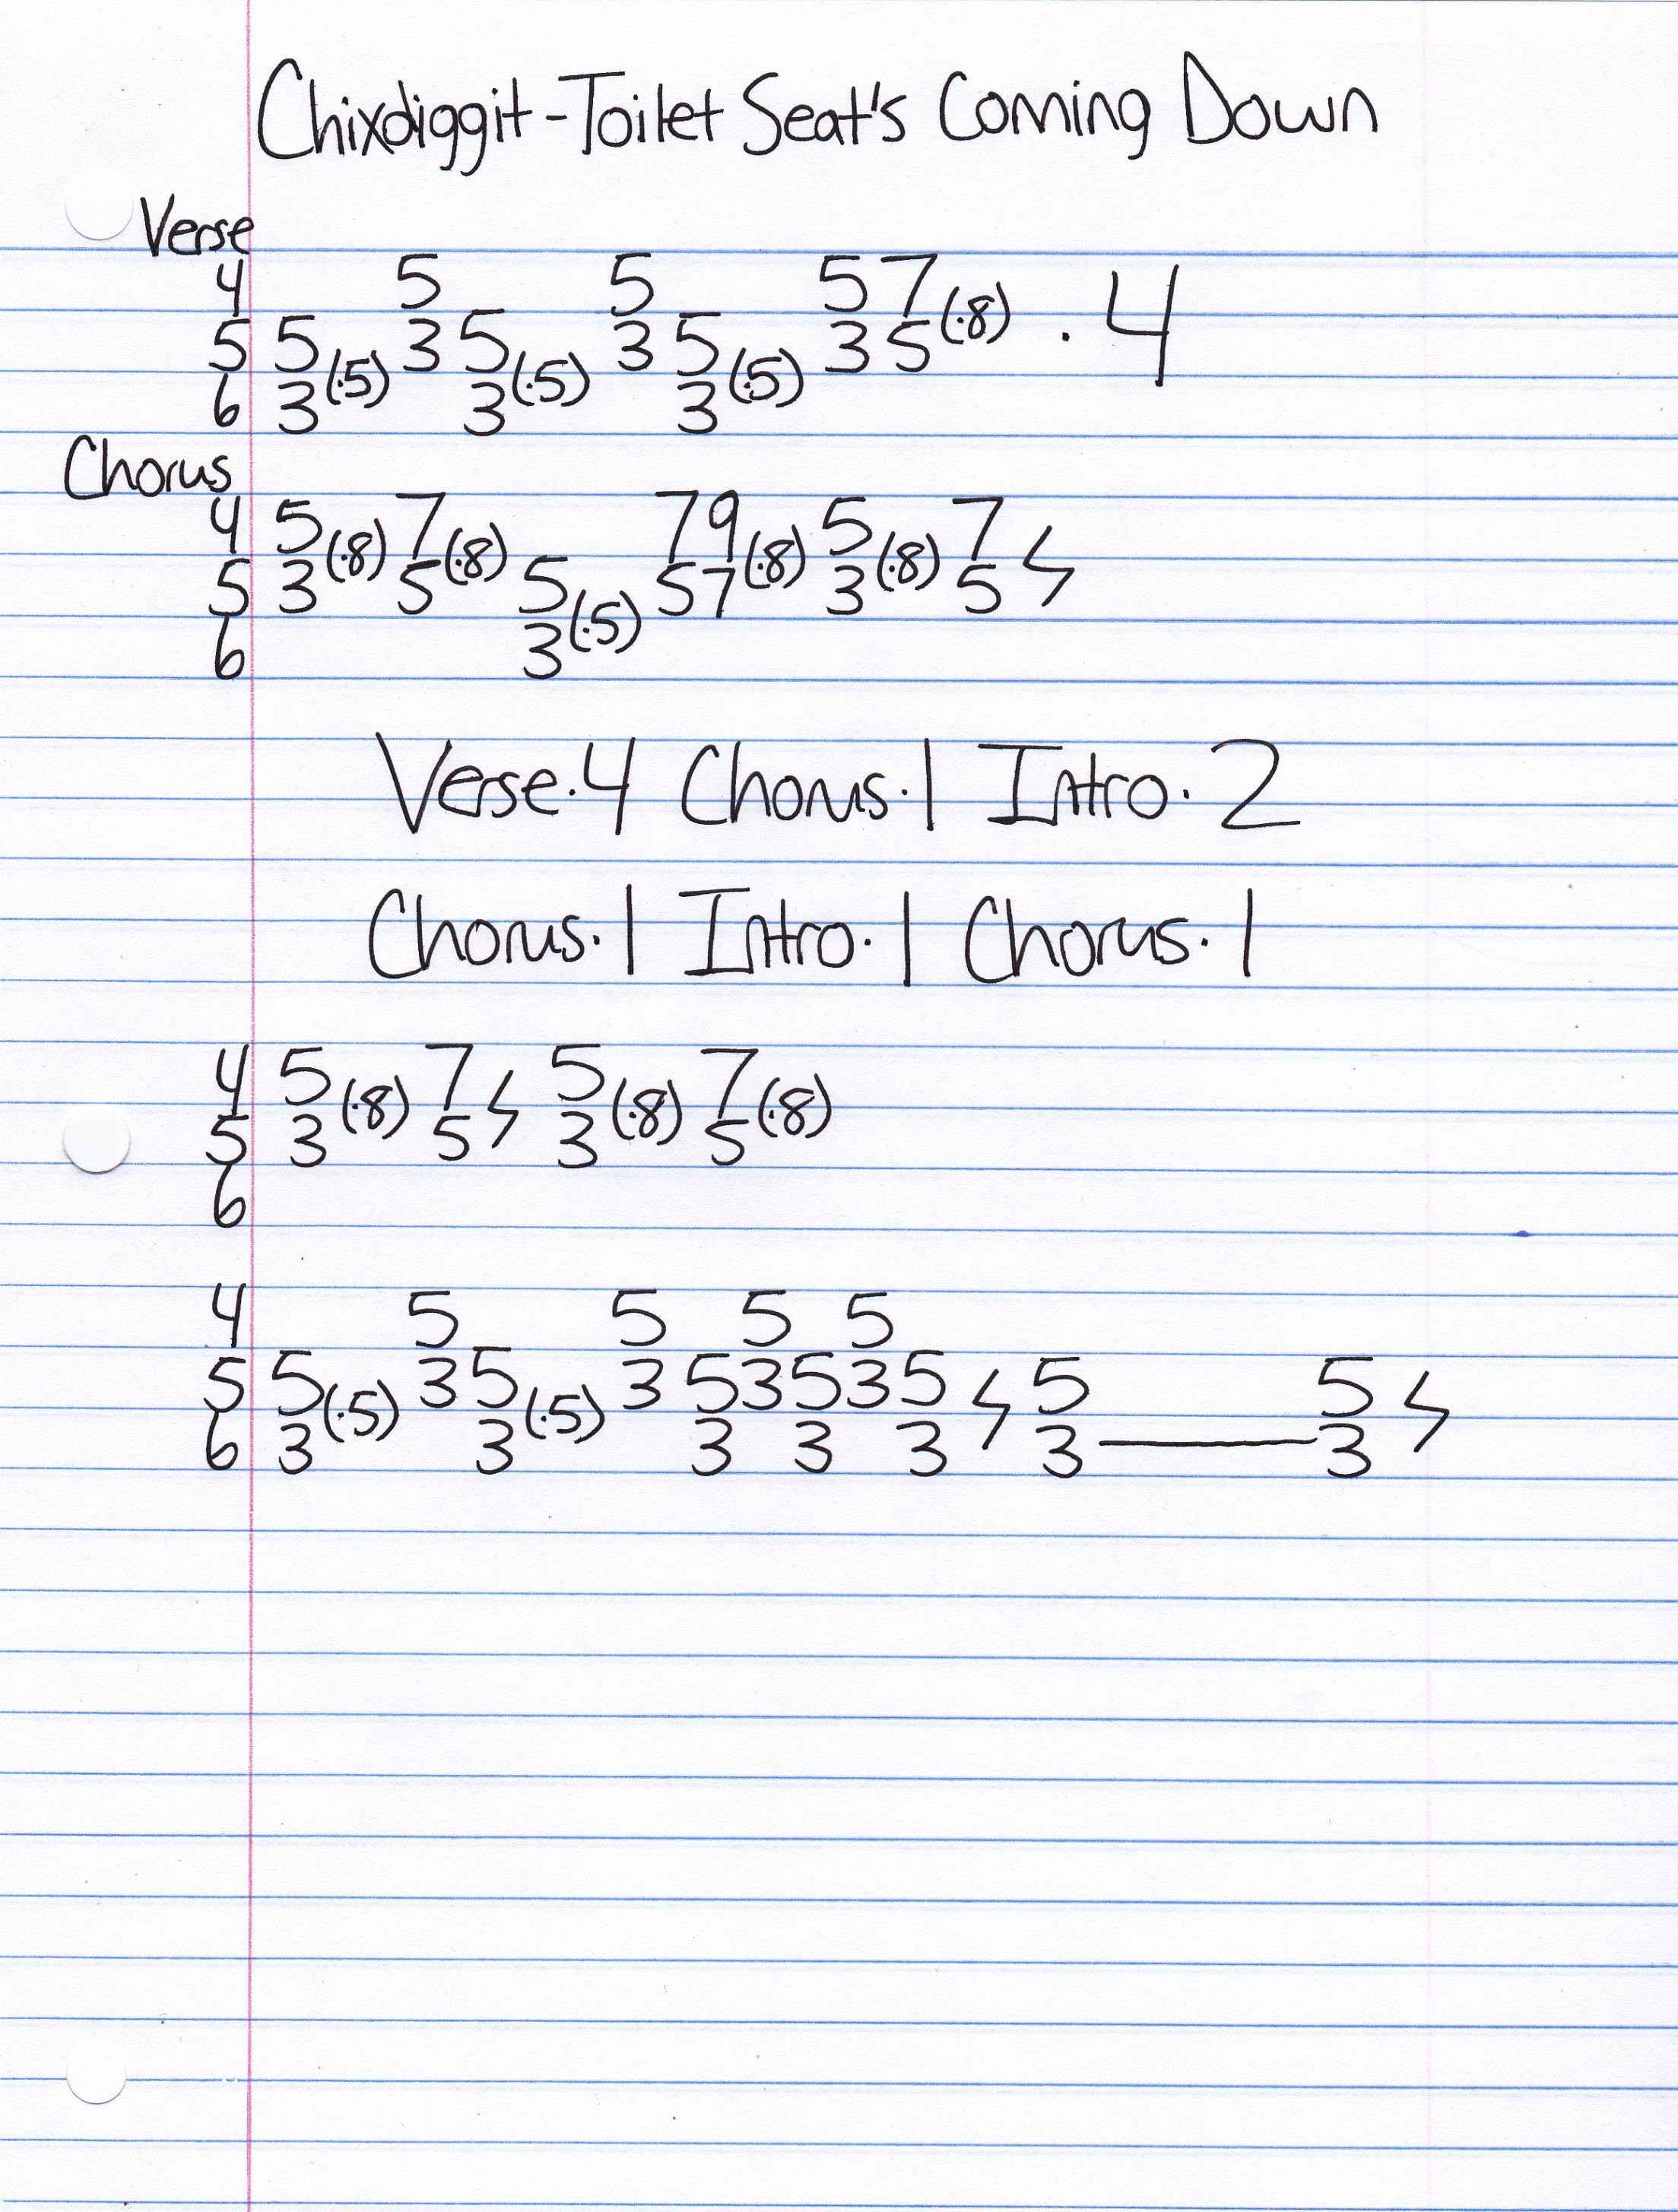 Chixdiggit-Toilet Seat's Coming Down
Verse
4 5 5 5 7 (·8) · 4
5 5 (·5) 3 5 (·5) 3 5 (·5) 3 5
6 3 3 3
Chorus
4 5 (·8) 7 (·8) 7 9 (·8) 5 (·8) 7 ϟ
5 3 5 5 (·5) 5 7 3 5
6 3
Verse·4 Chorus·1 Intro·2
Chorus·1 Intro·1 Chorus·1
4 5 (·8) 7 ϟ 5 (·8) 7 (·8)
5 3 5 3 5
6
4 5 5 5 5
5 5 (·5) 3 5 (·5) 3 5 3 5 3 5 ϟ 5 5 ϟ
6 3 3 3 3 3 3 —— 3